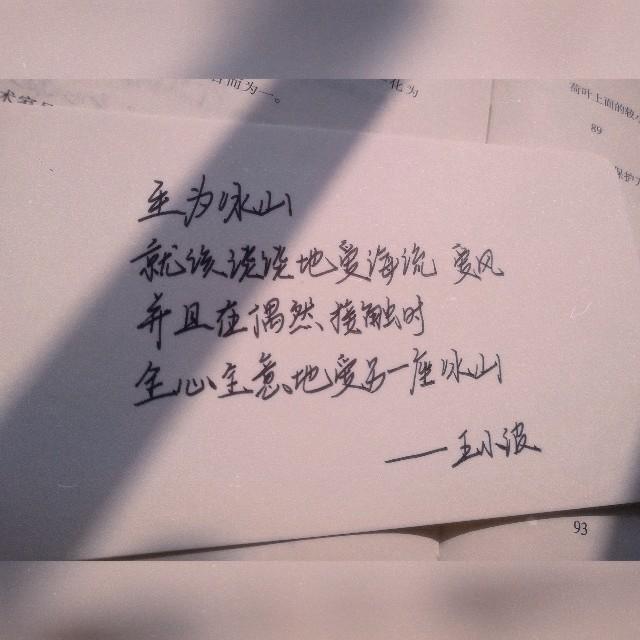 而为一。
化为
荷叶上面的较
89
保护
生为冰山
就该淡淡地爱海流 爱风
并且在偶然接触时
全心全意地爱另一座冰山
——王小波
93